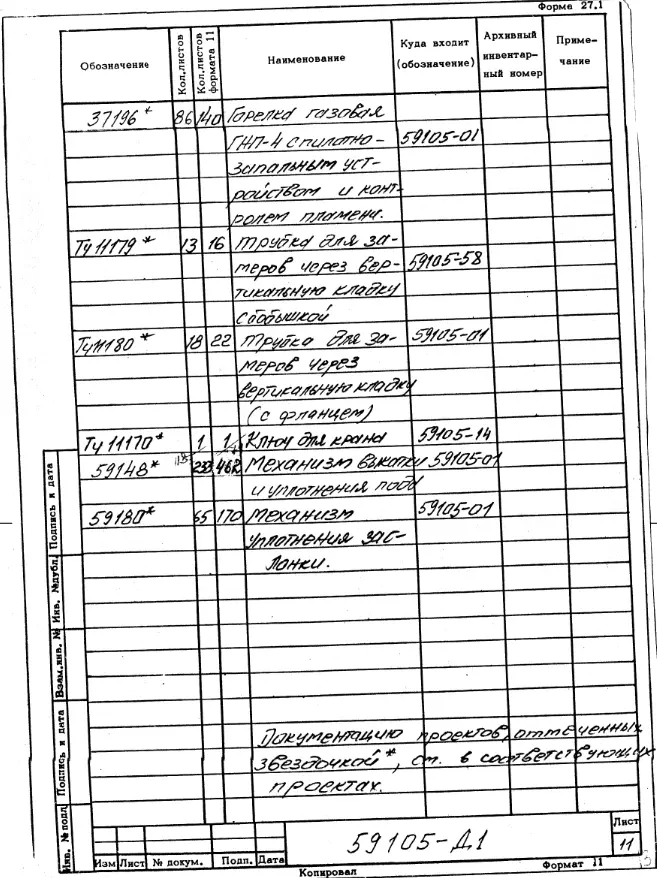 Форма 27.1
Обозначение Кол.листов Кол.листов формата 11 Наименование Куда входит (обозначение) Архивный инвентар- ный номер Приме- чание
37196* 86 140 Горелка газовая
ГНП-4 с пилотно- 59105-01
запальным уст-
ройством и конт-
ролем пламени.
Ту 11179* 13 16 Трубка для за-
меров через вер- 59105-58
тикальную кладку
с бобышкой
Ту 11180* 18 22 Трубка для за- 59105-01
меров через
вертикальную кладку
(с фланцем)
Ту 11170* 1 1 Ключ для крана 59105-14
59148* 462 Механизм выкатки 59105-01
и уплотнения пода
59180* 65 170 Механизм 59105-01
уплотнения зас-
лонки.
Документацию проектов, отмеченных
звездочкой*, см. в соответствующих
проектах.
Инв. № подл. Подпись и дата Взам.инв. № Инв. № дубл. Подпись и дата
59105-Д1
Лист
11
Изм Лист № докум. Подп. Дата
Копировал Формат 11